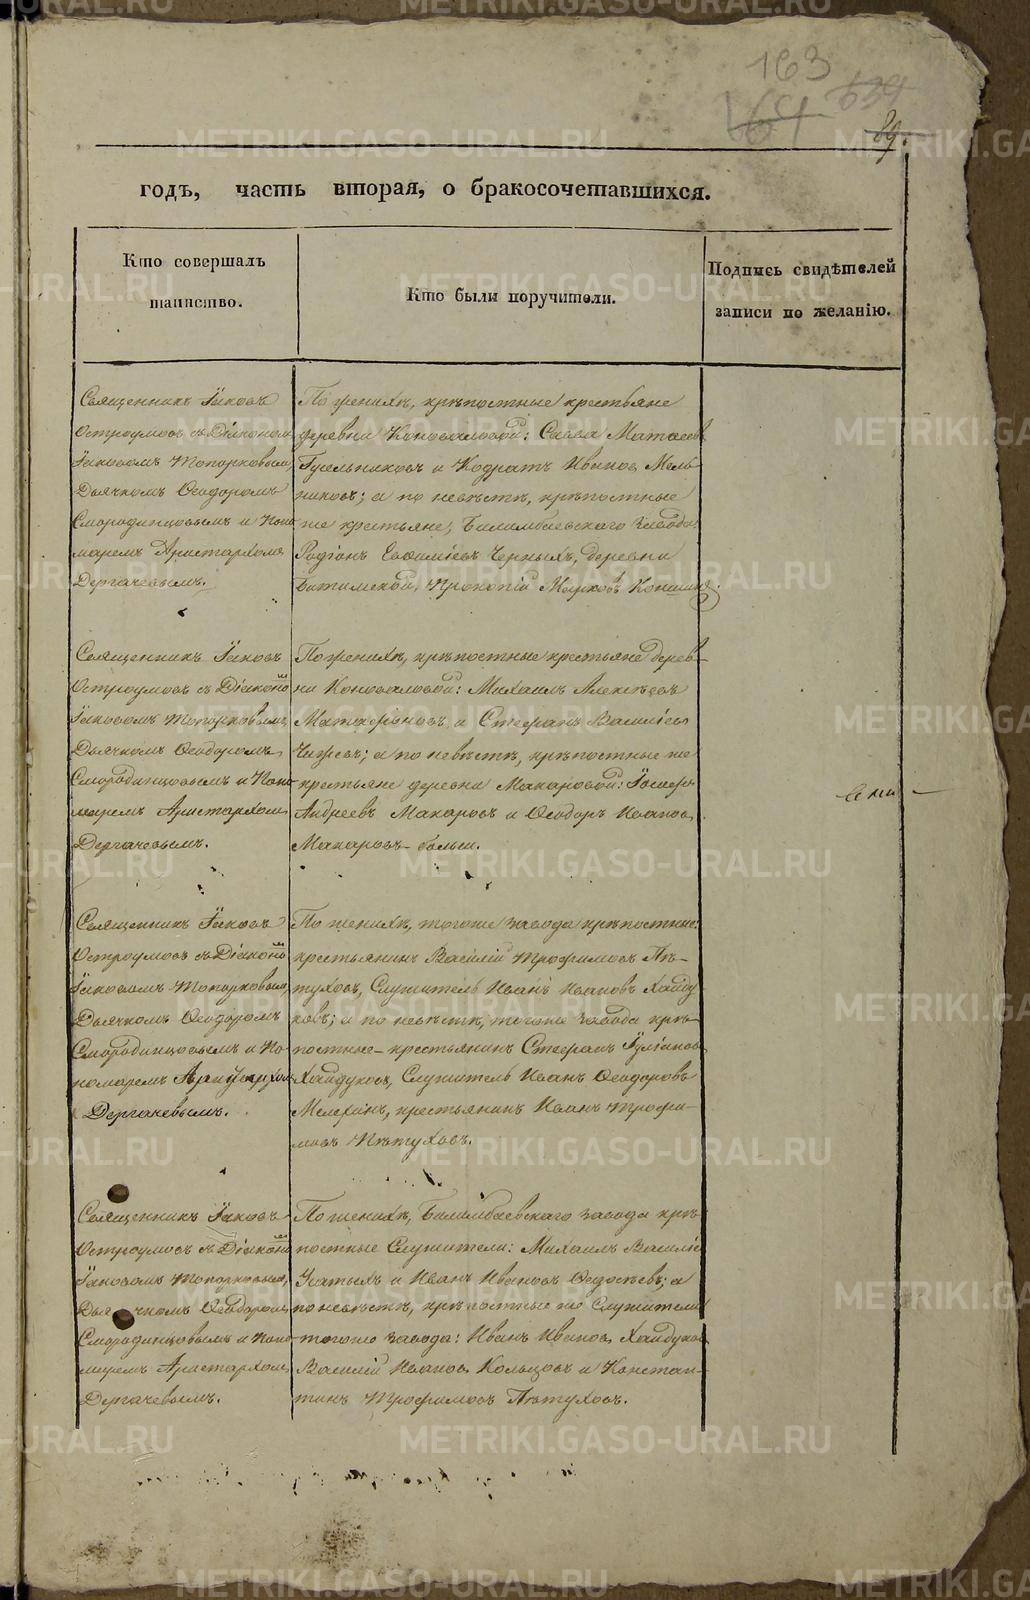 163
64 639
89.
годъ, часть вторая, о бракосочетавшихся.
Кто совершалъ
таинство.
Кто были поручители.
Подпись свидѣтелей
записи по желанію.
Священникъ Іаковъ
Остроумовъ съ Діакономъ
Іаковомъ Топорковымъ,
Дьячкомъ Ѳеодоромъ
Смородинцовымъ и Поно
маремъ Аристархомъ
Дергачевымъ.
По женихѣ, крѣпостные крестьяне
деревни Коноваловой: Савва Матвеевъ
Гусельниковъ и Кодратъ Ивановъ Мель-
никовъ; а по невѣстѣ, крѣпостные
же крестьяне, Билимбаевскаго завода
Родіонъ Евѳиміевъ Черныхъ, деревни
Битимской, Прокопій Марковъ
Священникъ Іаковъ
Остроумовъ съ Діакономъ
Іаковомъ Топорковымъ,
Дьячкомъ Ѳеодоромъ
Смородинцовымъ и Поно
маремъ Аристархомъ
Дергачевымъ.
По женихѣ, крѣпостные крестьяне дерев-
ни Коноваловой: Михаилъ Алексѣевъ
и Стефанъ Василіевъ
Чижевъ; а по невѣстѣ, крѣпостные же
крестьяне деревни Макаровой: Іосифъ
Андреевъ Макаровъ и Ѳеодоръ Ивановъ
Макаровъ-
Священникъ Іаковъ
Остроумовъ съ Діакономъ
Іаковомъ Топорковымъ,
Дьячкомъ Ѳеодоромъ
Смородинцовымъ и По-
номаремъ Аристархомъ
Дергачевымъ.
По женихѣ, тогоже завода крѣпостные:
крестьянинъ Василій Трофимовъ Пѣ-
туховъ, Служитель Иванъ Ивановъ Хайду
ковъ; а по невѣстѣ, тогоже завода крѣ-
постные- крестьянинъ Стефанъ Іуліановъ
Хайдуковъ, Служитель Иванъ Ѳеодоровъ
Мелехинъ, крестьянинъ Иванъ Трофи-
мовъ Пѣтуховъ.
Священникъ Іаковъ
Остроумовъ съ Діакономъ
Іаковомъ Топорковымъ,
Дьячкомъ Ѳеодоромъ
Смородинцовымъ и Поно
маремъ Аристархомъ
Дергачевымъ.
По женихѣ, Билимбаевскаго завода крѣ-
постные Служители: Михаилъ Василіевъ
Усатыхъ и Иванъ Ивановъ Ѳедосѣевъ; а
по невѣстѣ, крѣпостные же Служители
тогоже завода: Иванъ Ивановъ Хайдуковъ
Василій Ивановъ Кольцовъ и Констан-
тинъ Трофимовъ Пѣтуховъ.
METRIKI.GASO-URAL.RU